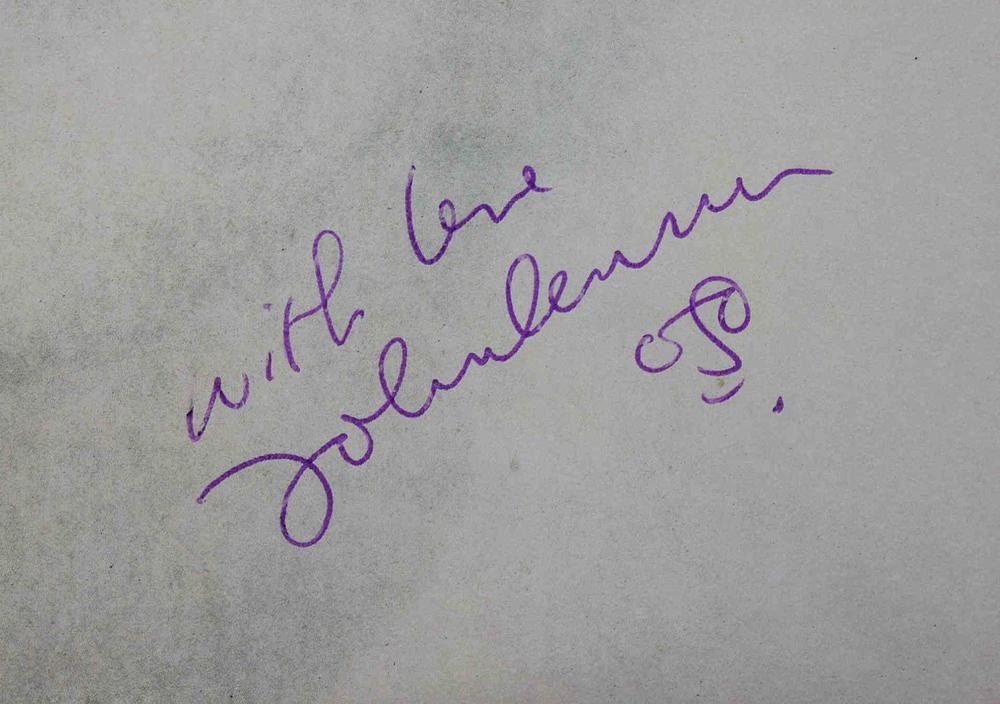 with love
John Lennon